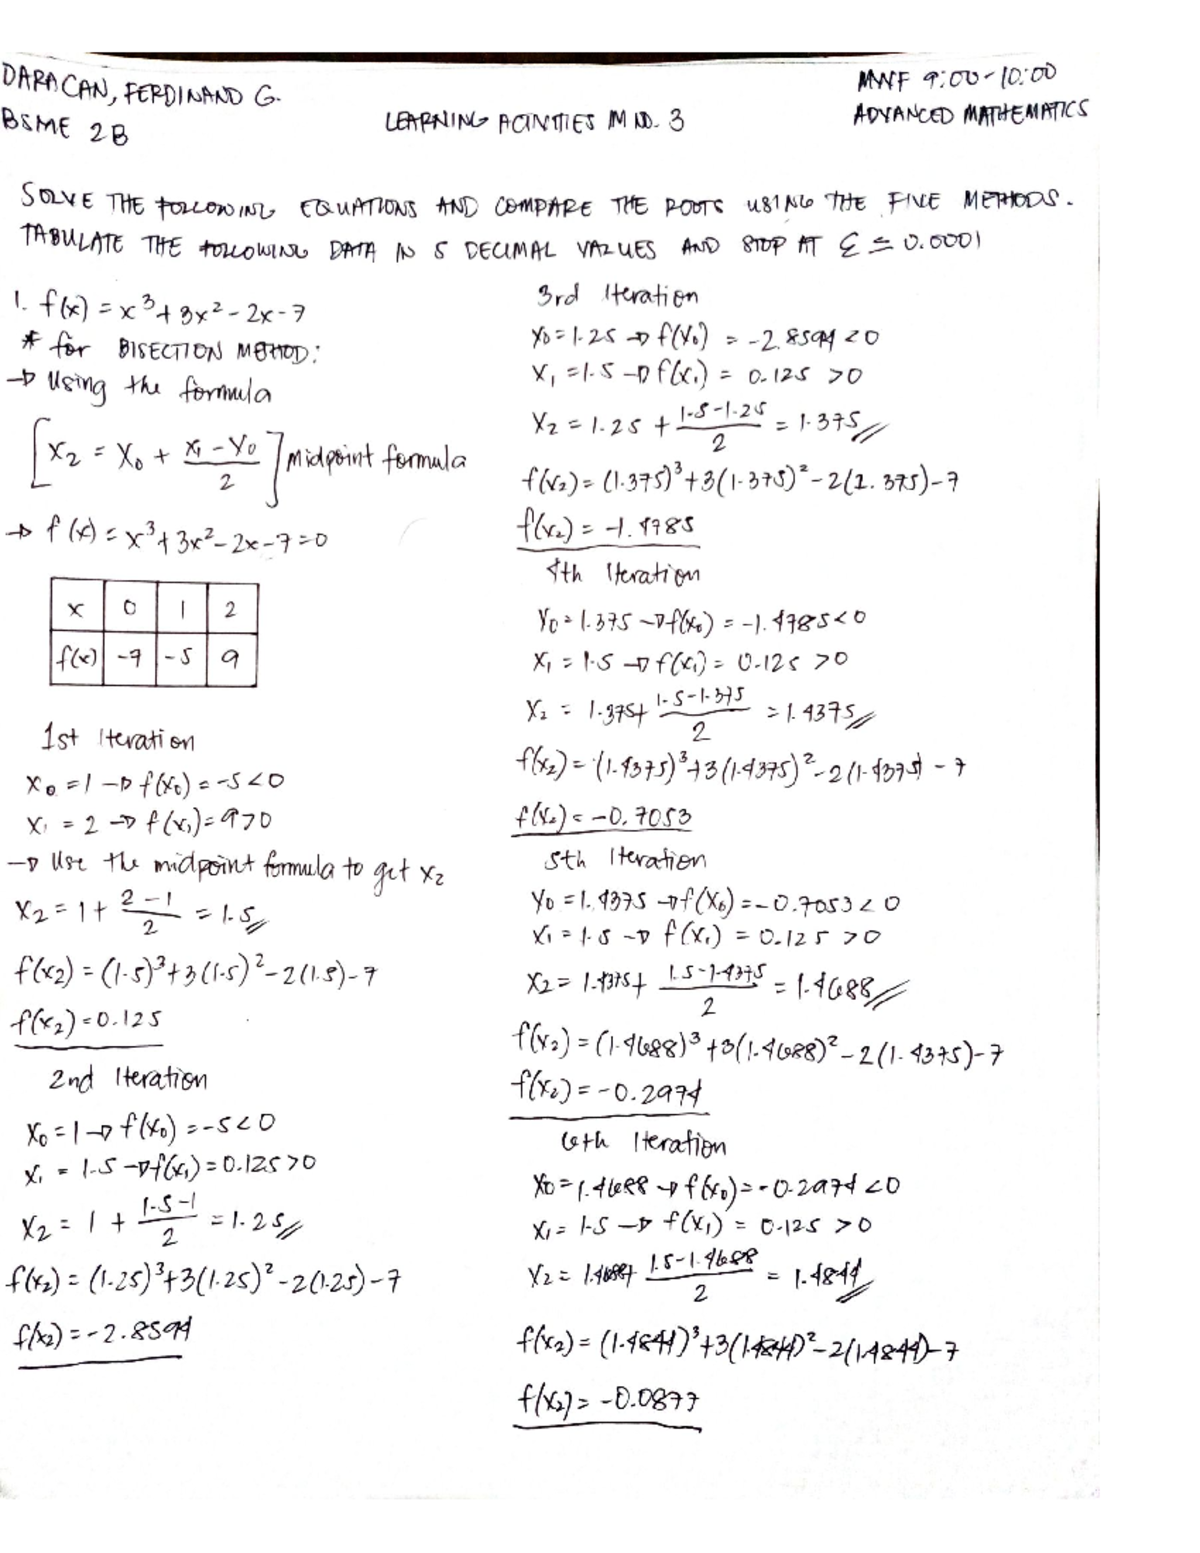 DARACAN, FERDINAND G.
BSME 2B
LEARNING ACTIVITIES M NO. 3
MWF 9:00-10:00
ADVANCED MATHEMATICS
SOLVE THE FOLLOWING EQUATIONS AND COMPARE THE ROOTS USING THE FIVE METHODS.
TABULATE THE FOLLOWING DATA IN 5 DECIMAL VALUES AND STOP AT ε ≤ 0.0001
1. f(x) = x³ + 3x² - 2x - 7
* for BISECTION METHOD:
→ Using the formula
[x₂ = x₀ + (x₁ - x₀)/2] Midpoint formula
→ f(x) = x³ + 3x² - 2x - 7 = 0
x 0 1 2
f(x) -7 -5 9
1st Iteration
x₀ = 1 → f(x₀) = -5 < 0
x₁ = 2 → f(x₁) = 9 > 0
→ Use the midpoint formula to get x₂
x₂ = 1 + (2-1)/2 = 1.5//
f(x₂) = (1.5)³ + 3(1.5)² - 2(1.5) - 7
f(x₂) = 0.125
2nd Iteration
x₀ = 1 → f(x₀) = -5 < 0
x₁ = 1.5 → f(x₁) = 0.125 > 0
x₂ = 1 + (1.5-1)/2 = 1.25//
f(x₂) = (1.25)³ + 3(1.25)² - 2(1.25) - 7
f(x₂) = -2.8594
3rd Iteration
x₀ = 1.25 → f(x₀) = -2.8594 < 0
x₁ = 1.5 → f(x₁) = 0.125 > 0
x₂ = 1.25 + (1.5-1.25)/2 = 1.375//
f(x₂) = (1.375)³ + 3(1.375)² - 2(1.375) - 7
f(x₂) = -1.4785
4th Iteration
x₀ = 1.375 → f(x₀) = -1.4785 < 0
x₁ = 1.5 → f(x₁) = 0.125 > 0
x₂ = 1.375 + (1.5-1.375)/2 = 1.4375//
f(x₂) = (1.4375)³ + 3(1.4375)² - 2(1.4375) - 7
f(x₂) = -0.7053
5th Iteration
x₀ = 1.4375 → f(x₀) = -0.7053 < 0
x₁ = 1.5 → f(x₁) = 0.125 > 0
x₂ = 1.4375 + (1.5-1.4375)/2 = 1.4688//
f(x₂) = (1.4688)³ + 3(1.4688)² - 2(1.4375) - 7
f(x₂) = -0.2974
6th Iteration
x₀ = 1.4688 → f(x₀) = -0.2974 < 0
x₁ = 1.5 → f(x₁) = 0.125 > 0
x₂ = 1.4688 + (1.5-1.4688)/2 = 1.4844//
f(x₂) = (1.4844)³ + 3(1.4844)² - 2(1.4844) - 7
f(x₂) = -0.0877